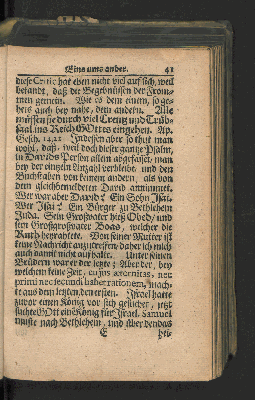 Eins ums ander. 41
diese Critic hat eben nicht viel auf sich, weil
bekant, daß die Begebnüssen der From-
men gemein. Wie es dem einen, so ge-
hets auch bey nahe, dem andern. Alle
müssen sie durch viel Creutz und Trüb-
saal ins Reich GOttes eingehen. Ap.
Gesch. 14,22 Indessen aber so thut man
wohl, daß, weil doch dieser gantze Psalm,
in Davids Person allein abgefasset, man
bey der eintzeln Anzahl verbleibe und den
Buchstaben von keinem andern, als von
dem gleichbemeldeten David annimmet.
Wer war aber David? Ein Sohn Isai.
Wer Isai? Ein Bürger zu Bethlehem
Juda. Sein Großvater hieß Obed/ und
sein Großgroßvater Boas, welcher die
Ruth heyrahtete. Von seiner Mutter ist
keine Nachricht anzutreffen/daher ich mich
auch damit nicht auf halte. Unter seinen
Brüdern war er der letzte; Aber der, bey
welchem keine Zeit, cujus æternitas, nec
primi nec secundi habet rationem, mach-
te aus dem letzten, den ersten. Israel hatte
zuvor einen König vor sich gesuchet, jetzt
suchte GOtt eine König für Israel. Samuel
muste nach Bethlehem, und alber den das
E